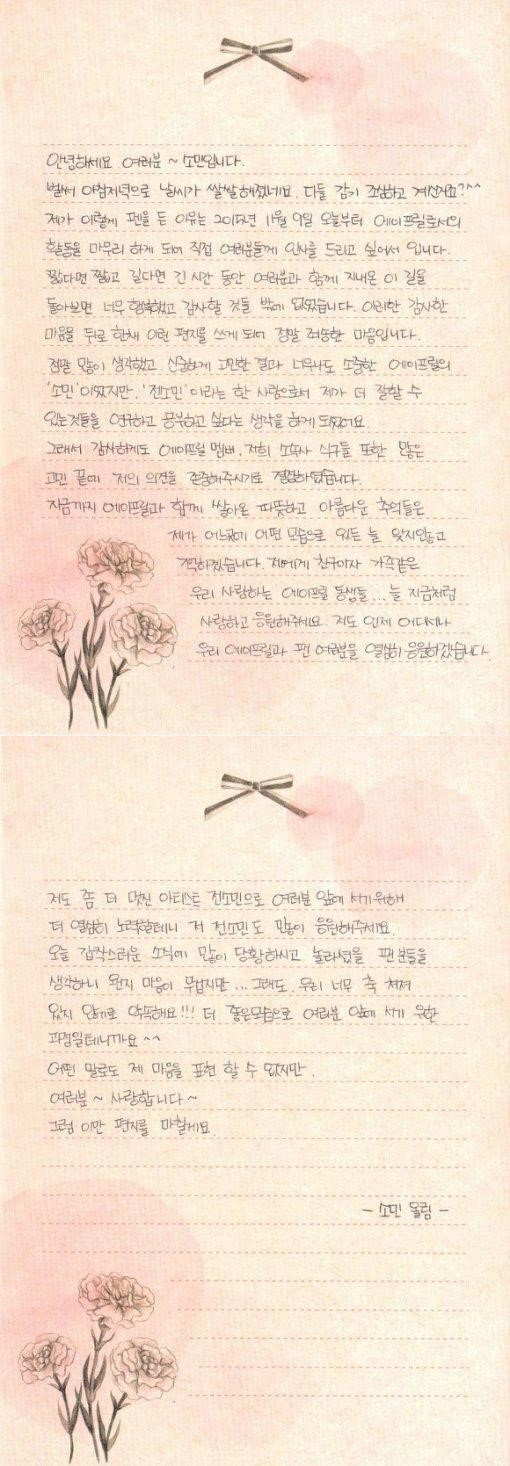 안녕하세요 여러분 ~ 소민입니다.
벌써 아침저녁으로 날씨가 쌀쌀해졌네요. 다들 감기 조심하고 계신거죠?^^
제가 이렇게 펜을 든 이유는 2015년 11월 9일 오늘부터 에이프릴로서의
활동을 마무리 하게 되어 직접 여러분들께 인사를 드리고 싶어서 입니다.
짧다면 짧고 길다면 긴 시간 동안 여러분과 함께 지내온 이 길을
돌아보면 너무 행복했고 감사할 것들 밖에 없었습니다. 이러한 감사한
마음을 뒤로 한채 이런 편지를 쓰게 되어 정말 죄송한 마음입니다.
정말 많이 생각했고 신중하게 고민한 결과 너무나도 소중한 에이프릴의
'소민'이었지만, '전소민'이라는 한 사람으로서 제가 더 잘할 수
있는것들을 연구하고 공부하고 싶다는 생각을 하게 되었어요.
그래서 감사하게도 에이프릴 멤버, 저희 소속사 식구들 또한 많은
고민 끝에 저의 의견을 존중해주시기로 결정하였습니다.
지금까지 에이프릴과 함께 쌓아온 따뜻하고 아름다운 추억들은
제가 어느곳에 어떤 모습으로 있든 늘 잊지않고
기억하겠습니다. 저에게 친구이자 가족같은
우리 사랑하는 에이프릴 동생들... 늘 지금처럼
사랑하고 응원해주세요. 저도 언제 어디서나
우리 에이프릴과 팬 여러분을 열심히 응원하겠습니다.
저도 좀 더 멋진 아티스트 전소민으로 여러분 앞에 서기위해
더 열심히 노력할테니 저 전소민도 많이 응원해주세요.
오늘 갑작스러운 소식에 많이 당황하시고 놀라셨을 팬분들을
생각하니 왠지 마음이 무겁지만... 그래도, 우리 너무 축 쳐져
있지 않기로 약속해요!!! 더 좋은모습으로 여러분 앞에 서기 위한
과정일테니까요^^
어떤 말로도 제 마음을 표현 할 수 없지만.
여러분~ 사랑합니다~
그럼 이만 편지를 마칠게요.
- 소민 올림 -